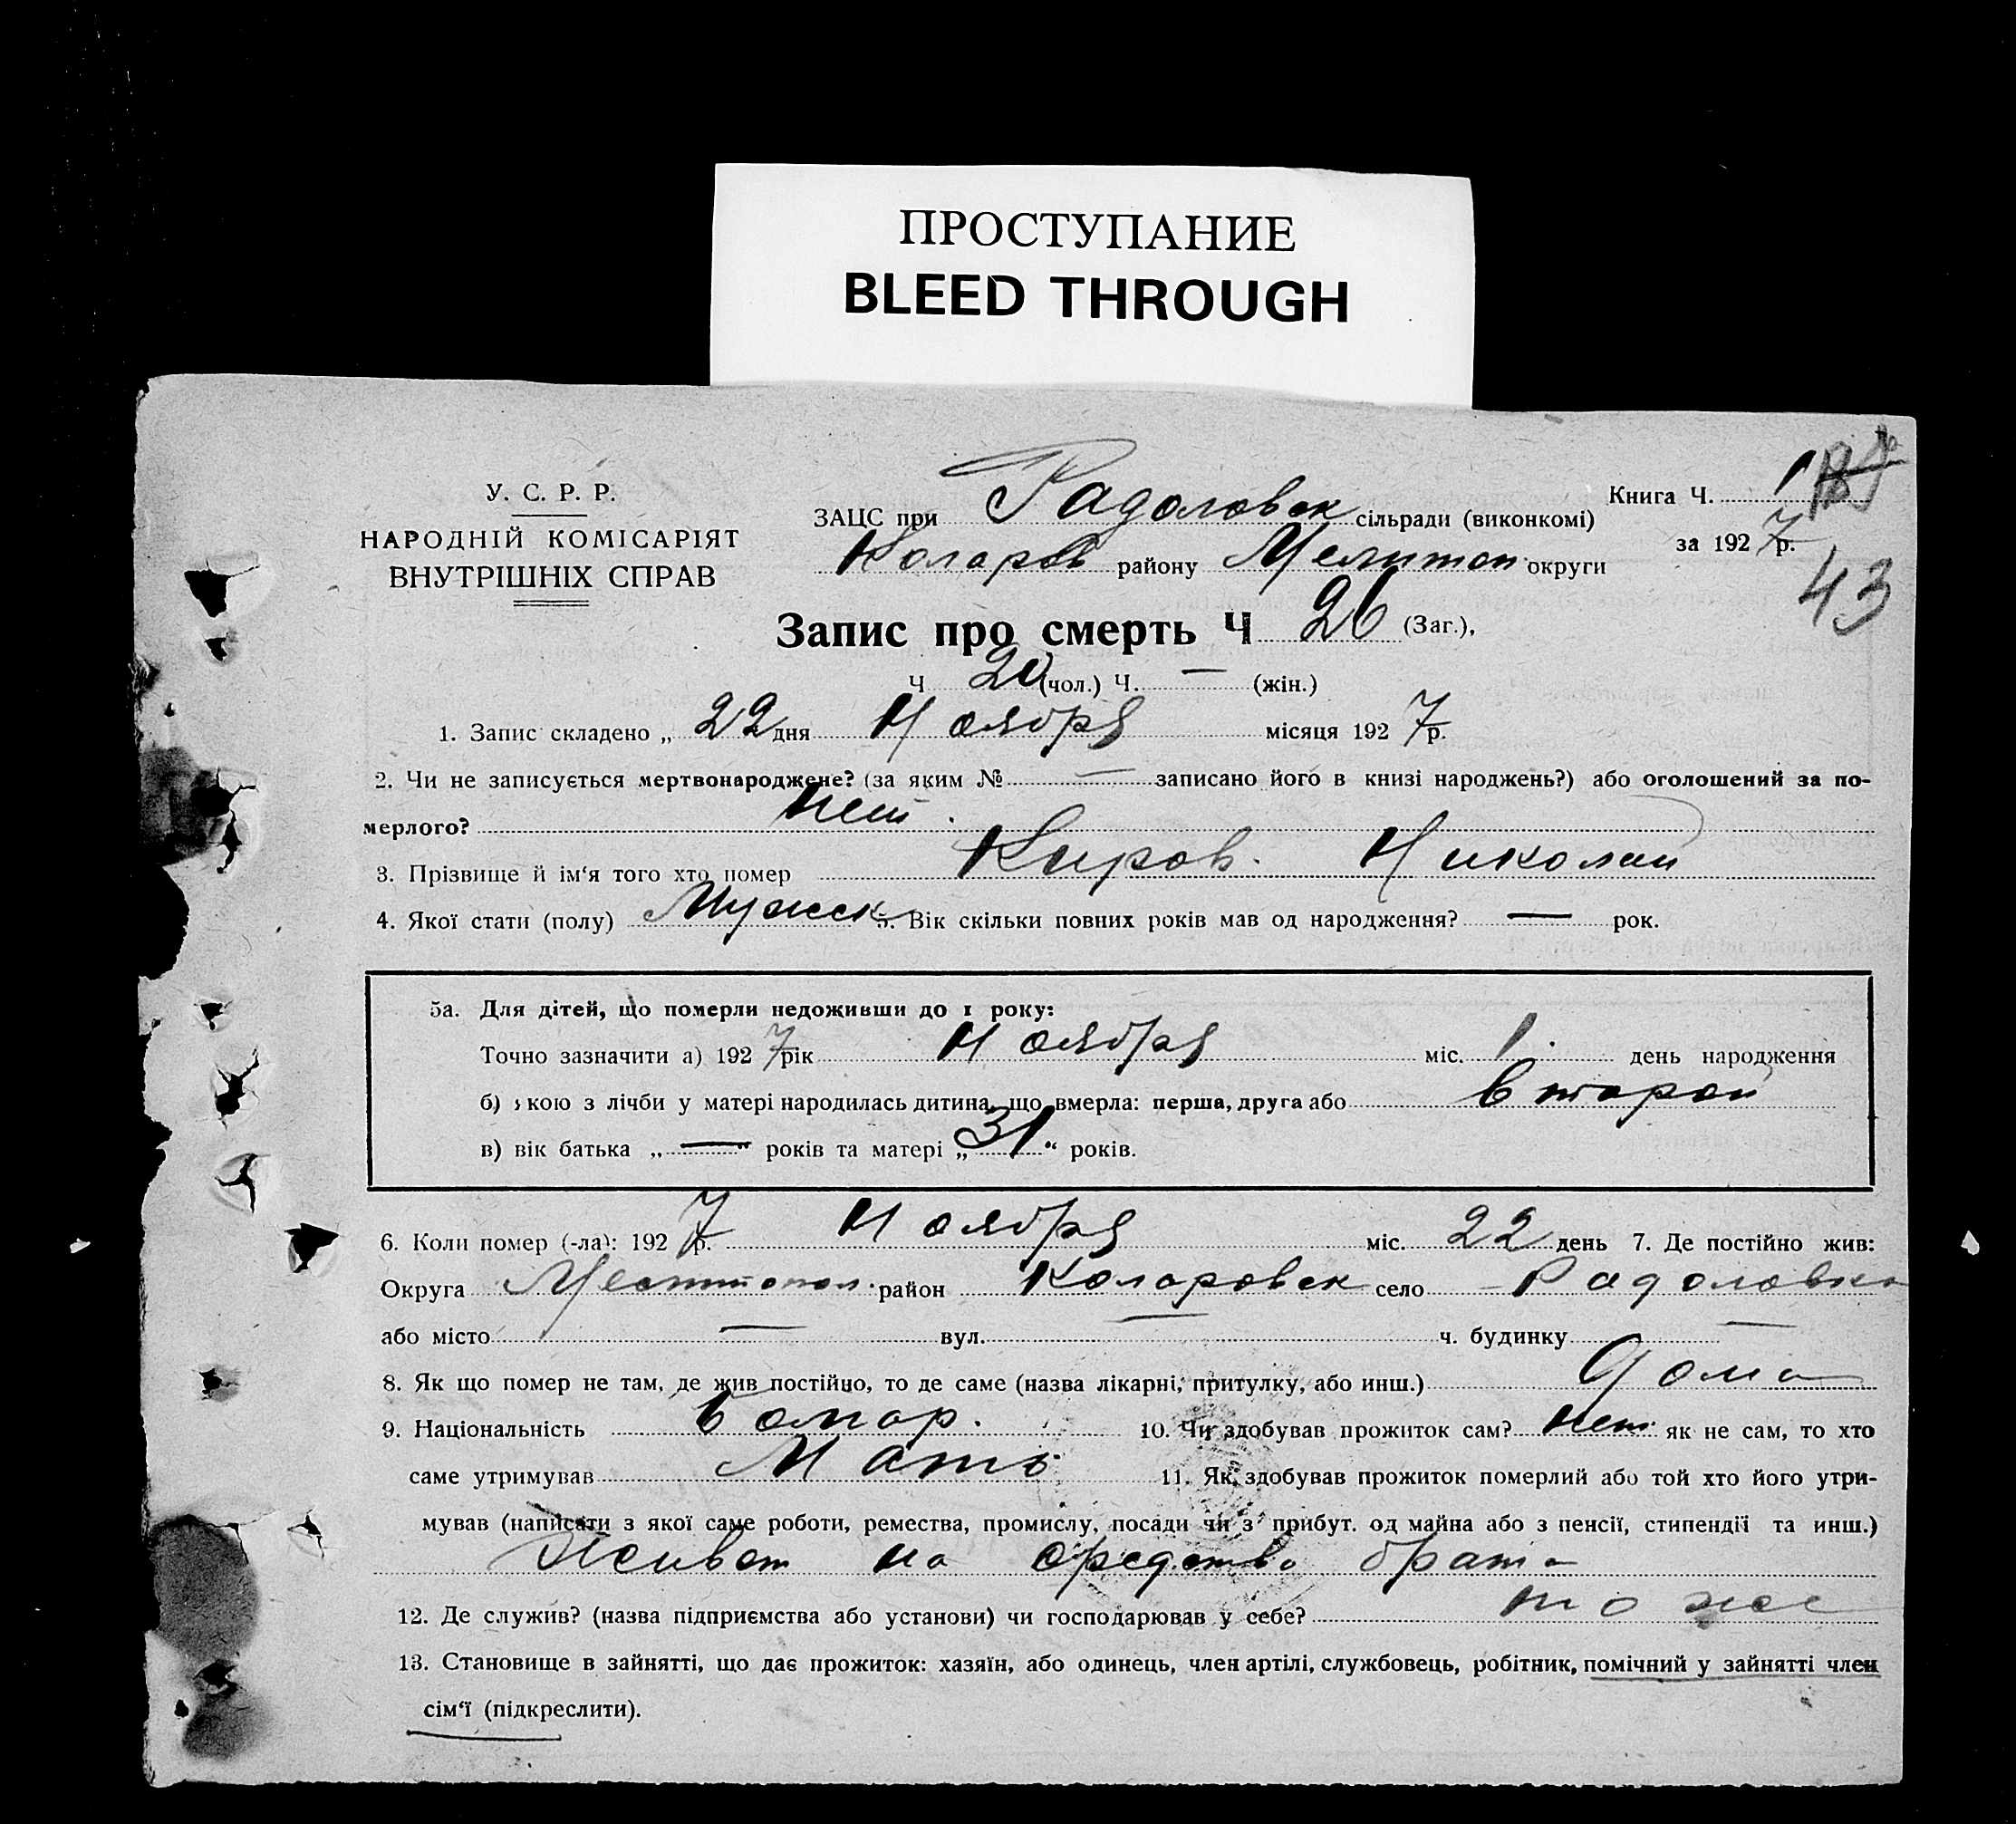 ПРОСТУПАНИЕ
BLEED THROUGH
У. С. Р. Р.
НАРОДНІЙ КОМІСАРІЯТ
ВНУТРІШНІХ СПРАВ
Книга Ч. 1
ЗАЦС при Радоловск сільради (виконкомі)
за 1927 р.
Коларов району Мелитоп. округи
43
Запис про смерть Ч 26 (Заг.),
Ч 20 (чол.) Ч. — (жін.)
1. Запис складено „ 22 дня Ноября місяця 1927 р.
2. Чи не записується мертвонароджене? (за яким № — записано його в книзі народжень?) або оголошений за по-
мерлого? нет.
3. Прізвище й ім‘я того хто помер Киров. Николай
4. Якої стати (полу) Мужск. 5. Вік скільки повних років мав од народження? — рок.
5а. Для дітей, що померли недоживши до 1 року:
Точно зазначити а) 1927 рік Ноября міс. 1 день народження
б) якою з лічби у матері народилась дитина, що вмерла: перша, друга або второй
в) вік батька „ — “ років та матері „ 31 “ років.
6. Коли помер (-ла): 1927 р. Ноября міс. 22 день 7. Де постійно жив:
Округа Мелитопол. район Коларовск село Радоловка
або місто — вул. — ч. будинку —
8. Як що помер не там, де жив постійно, то де саме (назва лікарні, притулку, або инш.) Дома
9. Національність болгар. 10. Чи здобував прожиток сам? нет як не сам, то хто
саме утримував Мать 11. Як здобував прожиток померлий або той хто його утри-
мував (написати з якої саме роботи, ремества, промислу, посади чи з прибут. од майна або з пенсії, стипендії та инш.)
Живет на средства брата
12. Де служив? (назва підприємства або установи) чи господарював у себе? то же
13. Становище в зайнятті, що дає прожиток: хазяїн, або одинець, член артілі, службовець, робітник, помічний у зайнятті член
сім‘ї (підкреслити).